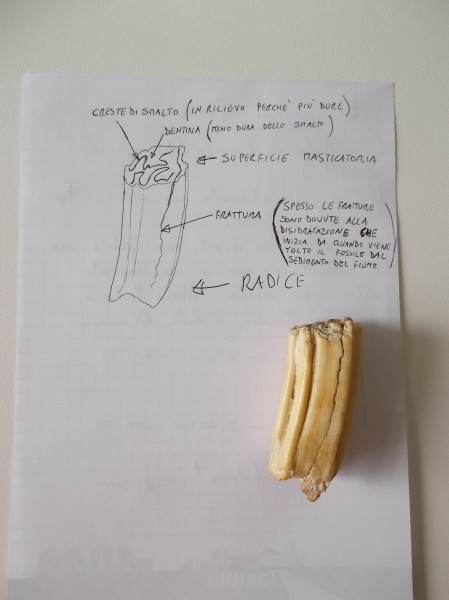 CRESTE DI SMALTO (IN RILIEVO PERCHE' PIU' DURE)
DENTINA (MENO DURA DELLO SMALTO)
SUPERFICIE MASTICATORIA
FRATTURA
(SPESSO LE FRATTURE
SONO DOVUTE ALLA
DISIDRATAZIONE CHE
INIZIA DA QUANDO VIENE
TOLTO IL FOSSILE DAL
SEDIMENTO DEL FIUME)
RADICE